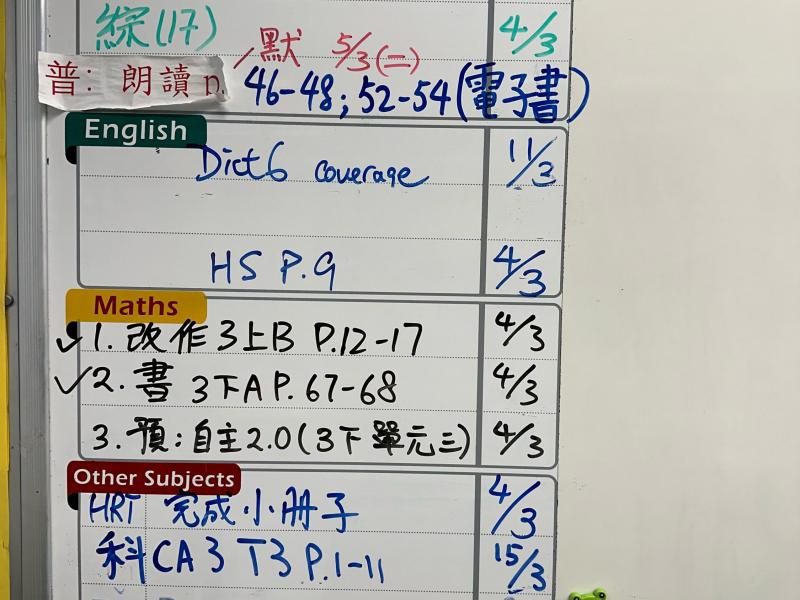 綜(17) 4/3
默 5/3(二)
普: 朗讀 p. 46-48; 52-54(電子書)
English
Dict6 coverage 11/3
HS P.9 4/3
Maths
✓1. 改作3上B P.12-17 4/3
✓2. 書 3下A P.67-68 4/3
3. 預:自主2.0(3下單元三) 4/3
Other Subjects
HRT 完成小册子 4/3
科CA3 T3 P.1-11 15/3